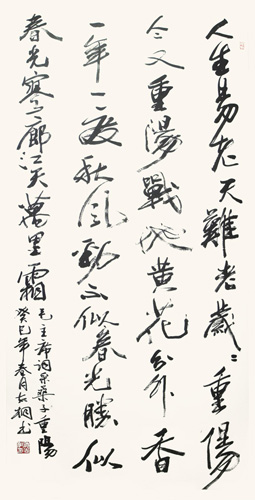 人生易老天難老歲〻重陽
今又重陽戰地黄花分外香
一年一度秋風勁不似春光勝似
春光寥廓江天萬里霜
毛主席詞采桑子重陽
癸巳年春月